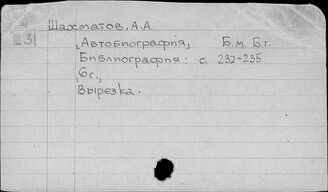 Шахматов, А.А.
Ш31
„Автобиография„ Б.м. Б.г.
Библиография: с. 232-235
„6с.„
Вырезка.